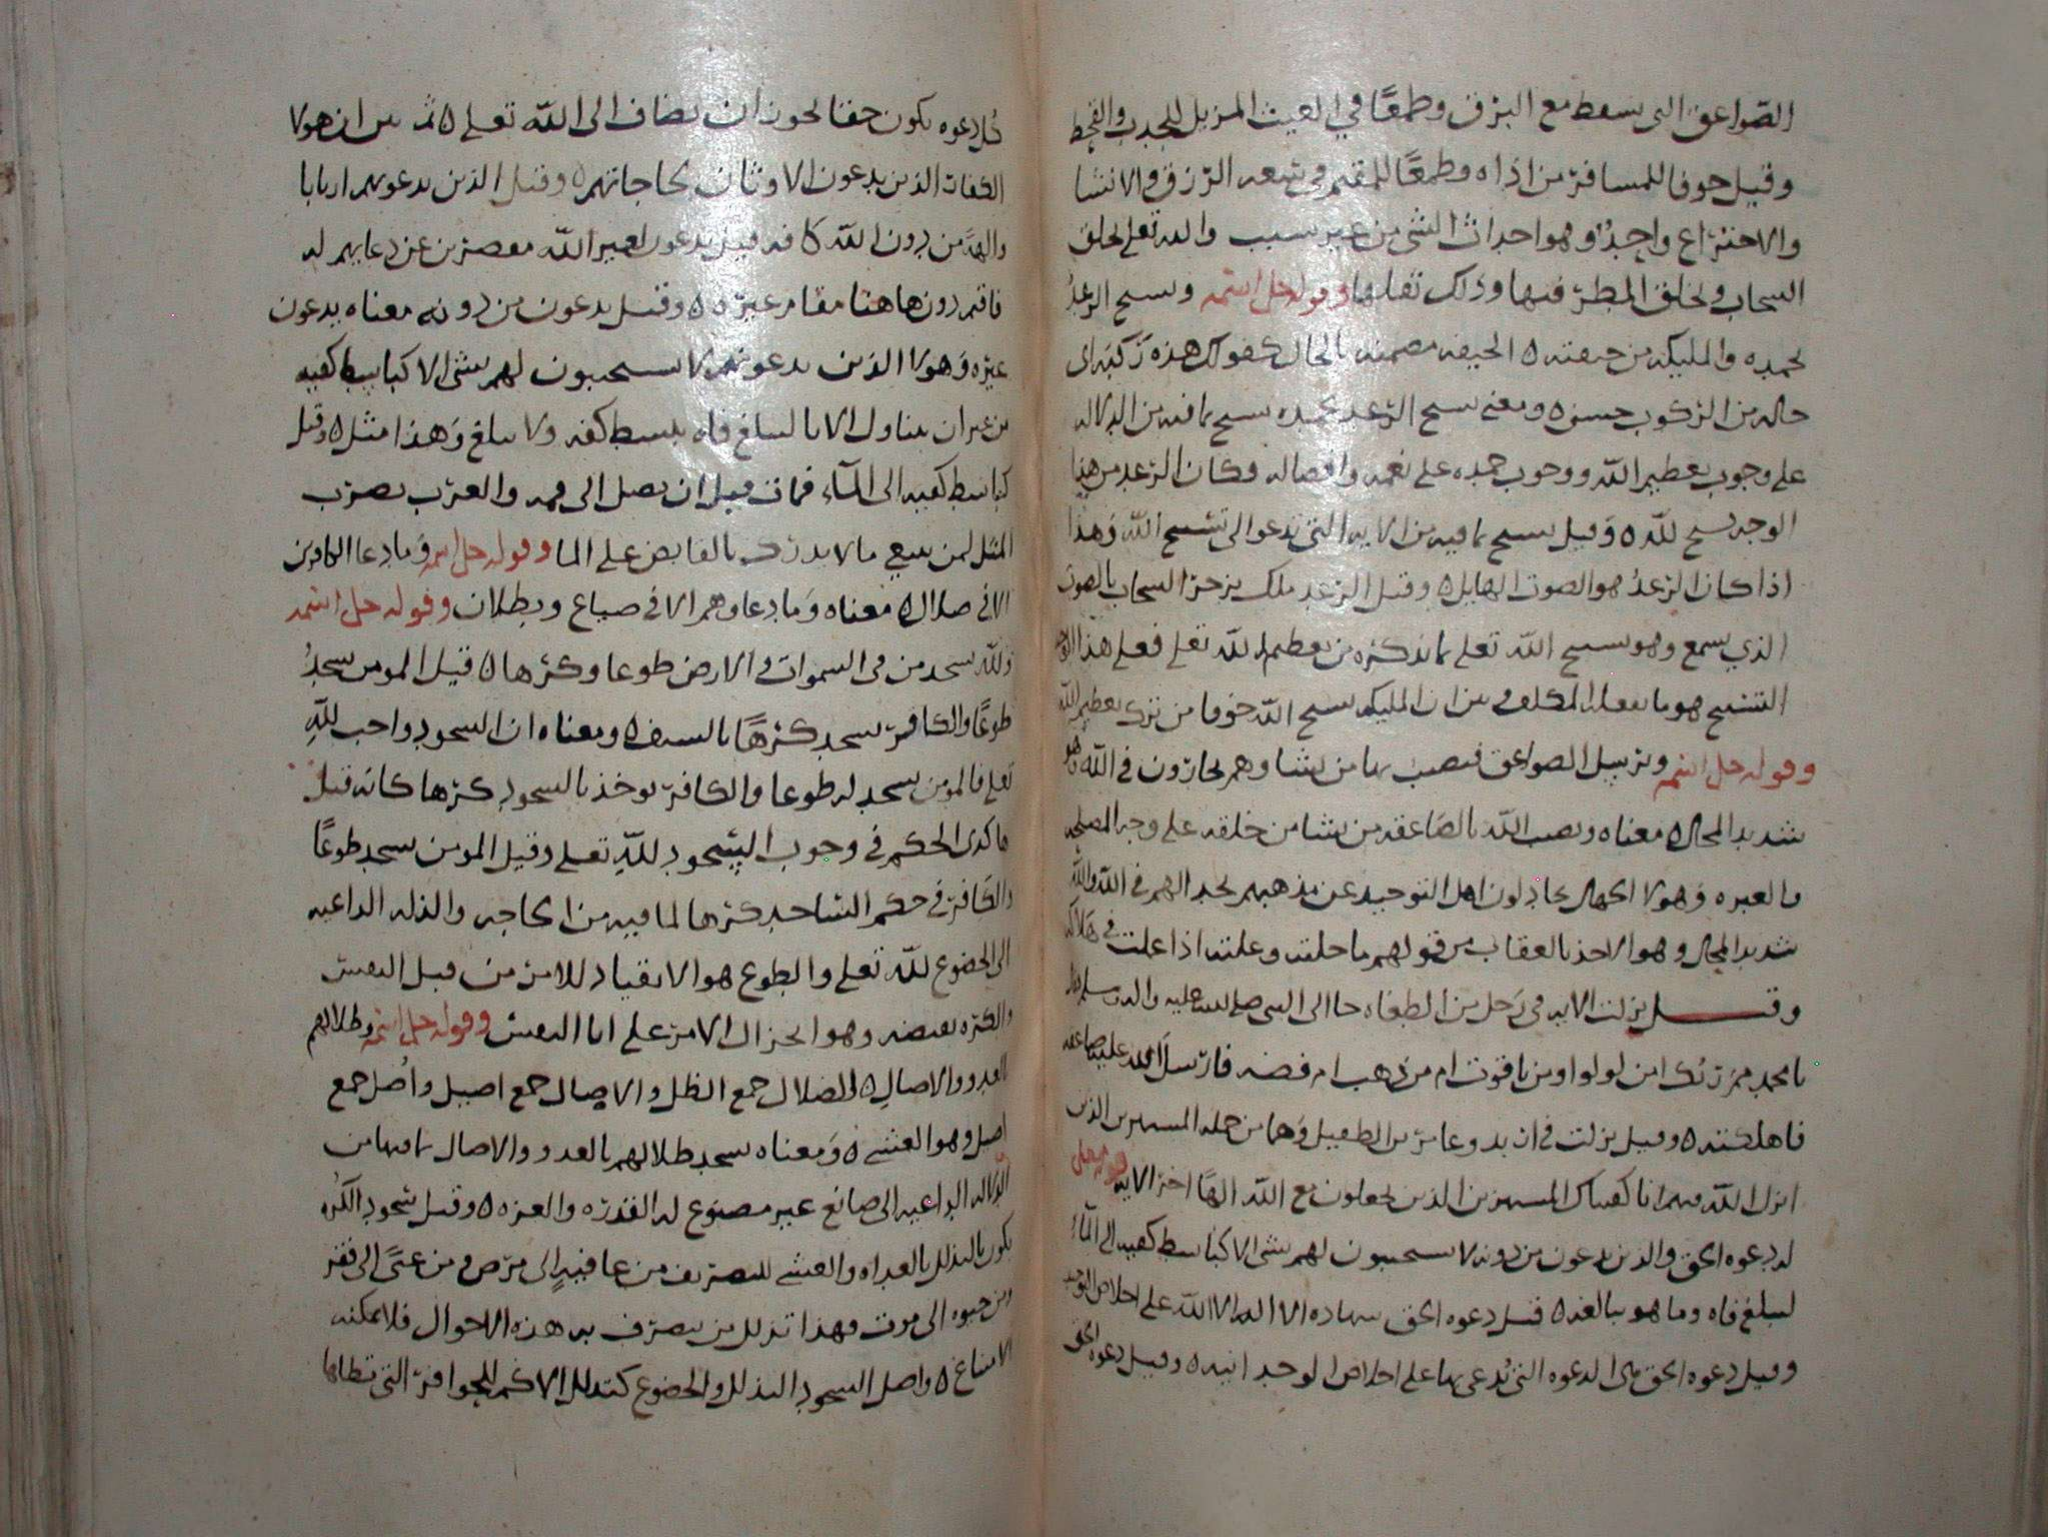 الصواعق التي تسقط مع البرق وطمعًا في الغيث المزيل للجدب والقحط
وقيل خوفا للمسافر من اذاه وطمعًا للمقيم في سعه الرزق والانشا
والاختراع واحدٌ وهو احداث الشي من غير سبب والله تعلى يخلق
السحاب ويخلق المطر فيها وذلك ثقلها وقوله جل اسمه ويسبح الرعدُ
بحمده والمليكه من خيفته ٥ الخيفه مضمنه بالحال كقولك هذه ركبه اي
حاله من الركوب حسنه ٥ ومعنى يسبح الرعد بحمده يسبح بما فيه من الدلاله
على وجوب تعظيم الله ووجوب حمده على نعمه وافضاله فكان الرعد من هذا
الوجه يسبح لله ٥ وقيل يسبح بما فيه من الايه التي تدعو الى تسبيح الله وهذا
اذا كان الرعدُ هو الصوت الهايل ٥ وقيل الرعد ملك يزجر السحاب بالصوت
الذي يسمع وهو يسبح الله تعلى بما يذكره من تعظيم الله تعلى فعلى هذا الوجه
التسبيح هو ما يفعله المكلف وبين ان المليكه يسبح الله خوفا من ترك تعظيم الله
وقوله جل اسمه ويرسل الصواعق فيصيب بها من يشا وهم يجادلون في الله وهو
شديد المحال ٥ معناه ويصيب الله بالصاعقه من يشا من خلقه على وجه المصلحه
والعبره وهولا الجهال يجادلون اهل التوحيد عن مذهبهم بجدالهم في الله والله
شديد المحال وهو الاخذ بالعقاب من قولهم ماحلته اذا في هلاكه
وقيل نزلت الايه في رجل من الطغاه جا الى النبي صلى الله عليه واله وسلم فقال
يا محمد مم ربك امن لولو او من ياقوت ام من ذهب ام فضه فارسل الله عليه صاعقه
فاهلكته ٥ وقيل نزلت في اربد وعامر بن الطفيل وهما من جمله المستهزين الذين
انزل الله فيهم انا كفيناك المستهزين الذين يجعلون مع الله الهًا اخر الايه قوله تعلى
له دعوه الحق والذين يدعون من دونه لا يستجيبون لهم بشي الا كباسط كفيه الى الماء
ليبلغ فاه وما هو ببالغه ٥ قيل دعوه الحق شهاده الا اله الا الله على اخلاص التوحيد
وقيل دعوه الحق هي الدعوه التي يُدعى بها على اخلاص الوحدانيه ٥ وقيل دعوه الحق
كل دعوه يكون حقا يجوز ان يضاف الى الله تعلى ٥ ثم بين ان هولا
الكفار الذين يدعون الاوثان لحاجاتهم ٥ وقيل الذين يدعونهم اربابا
والهةً من دون الله كما قد قيل يدعون لغير الله مقصرين عن دعايهم له
فاقيم دون هاهنا مقام غيره ٥ وقيل يدعون من دونه معناه يدعون
غيره وهولا الذين يدعونهم لا يستجيبون لهم بشي الا كباسط كفيه
من غير ان يتناول الانا ليبلغ فاه ببسط كفه ولا يبلغ وهذا مثل ٥ وقيل
كباسط كفيه الى الماء فمات قبل ان يصل الى فمه والعرب يضرب
المثل لمن يبتغي ما لا يدرك بالقابض على الما وقوله جل اسمه وما دعا الكافرين
الا في ضلال ٥ معناه وما دعاوهم الا في ضياع وبطلان وقوله جل اسمه
ولله يسجد من في السموات والارض طوعا وكرها ٥ قيل المومن يسجدُ
طوعًا والكافر يسجد كرهًا بالسيف ٥ ومعناه ان السجود واجب لله
تعلى فالمومن يسجد له طوعا والكافر يوخذ بالسجود كرها كانه قيل
هاكذى الحكم في وجوب السجود لله تعلى وقيل المومن يسجد طوعًا
والكافر في حكم الساجد كرها لما فيه من الحاجه والذله الداعيه
الى الخضوع لله تعلى والطوع هو الانقياد للامر من قبل النفس
والكره نقيضه وهو الى الامر على ابا النفس وقوله جل اسمه وظلالهم
بالغدو والاصال ٥ الظلال جمع الظل والاصال جمع اصيل واصل جمع
اصيل وهو العشي ٥ ومعناه يسجد ظلالهم بالغدو والاصال بما فيها من
الدلاله الداعيه الى صانع غير مصنوع له القدره والعزه ٥ وقيل سجود الكره
يكون بالتذلل بالغداه والعشي للتصريف من عافيةٍ الى مرض ومن غنًى الى فقر
ومن حيوه الى موت فهذا تذلل من يصرف به هذه الاحوال فلا يمكنه
الامتناع ٥ واصل السجود التذلل والخضوع كتذلل الاكم للحوافر التي تطاها